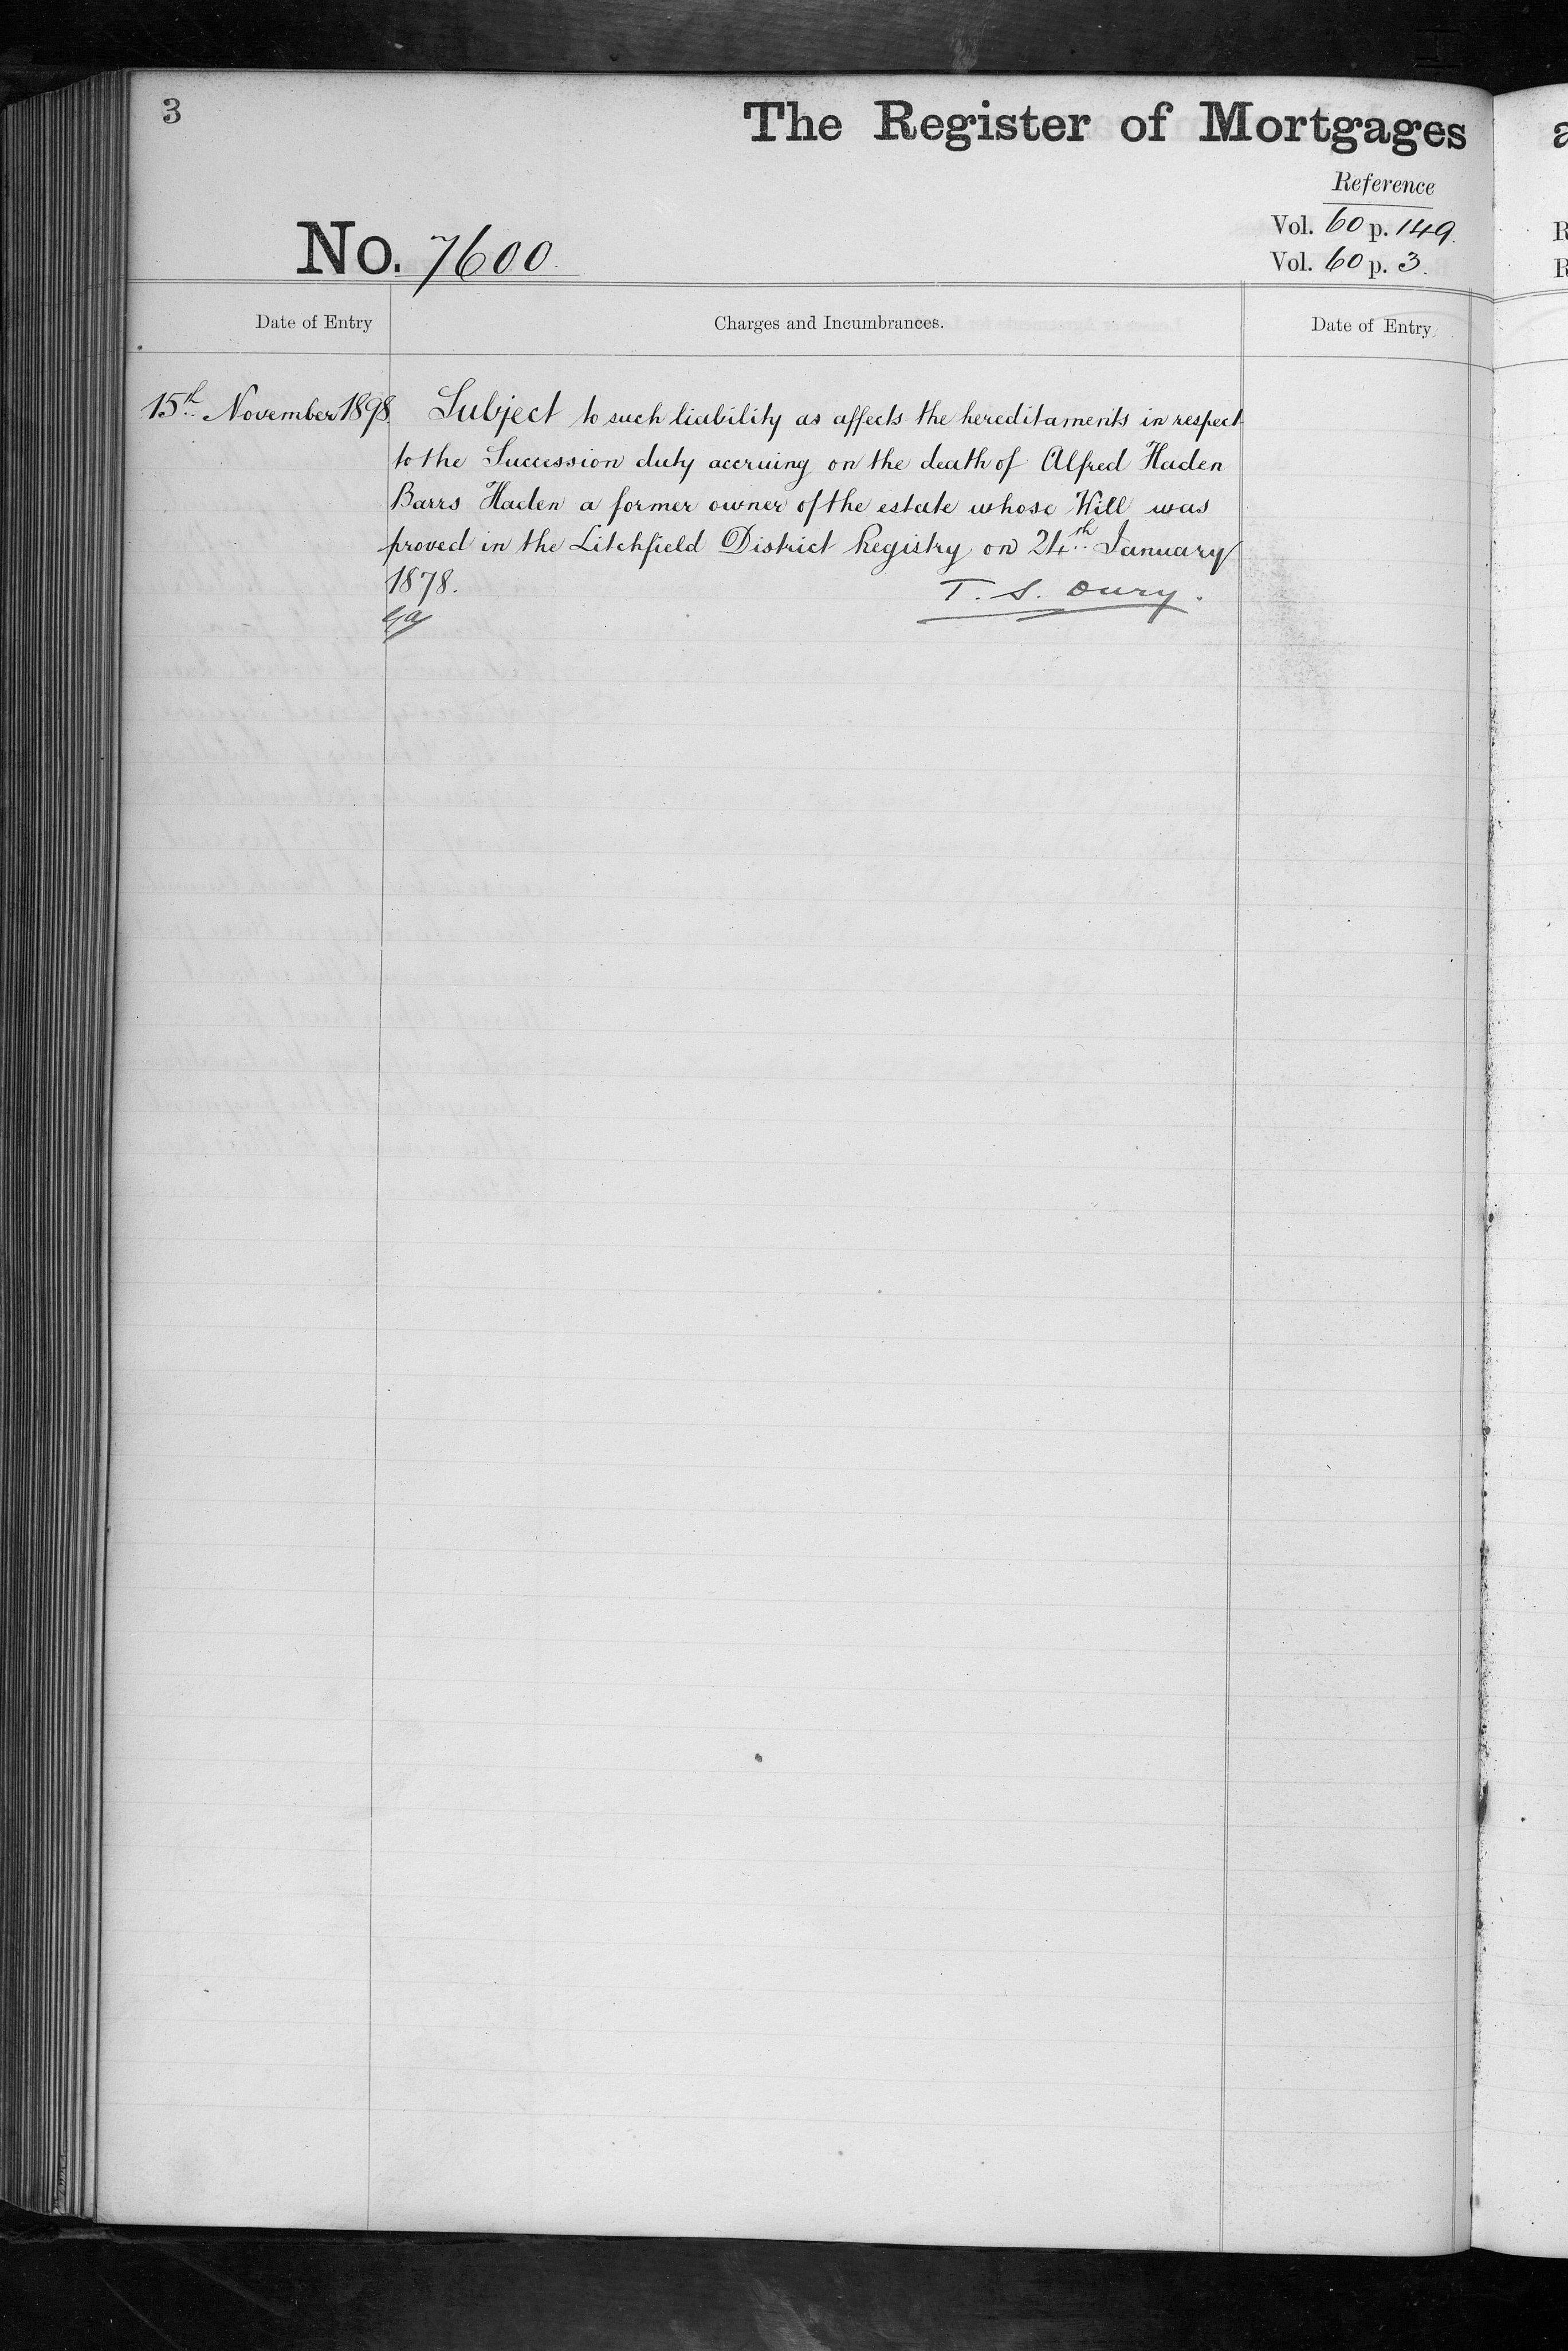 3
The Register of Mortgages
Reference
Vol. 60 p. 149.
Vol. 60 p. 3.
No. 7600.
Date of Entry
Charges and Incumbrances.
Date of Entry
15th November 1898.
Subject to such liability as affects the hereditaments in respect
to the Succession duty accruing on the death of Alfred Haden
Barrs Haden a former owner of the estate whose Will was
proved in the Litchfield District Registry on 24th January
1878.
T. S. Oury.